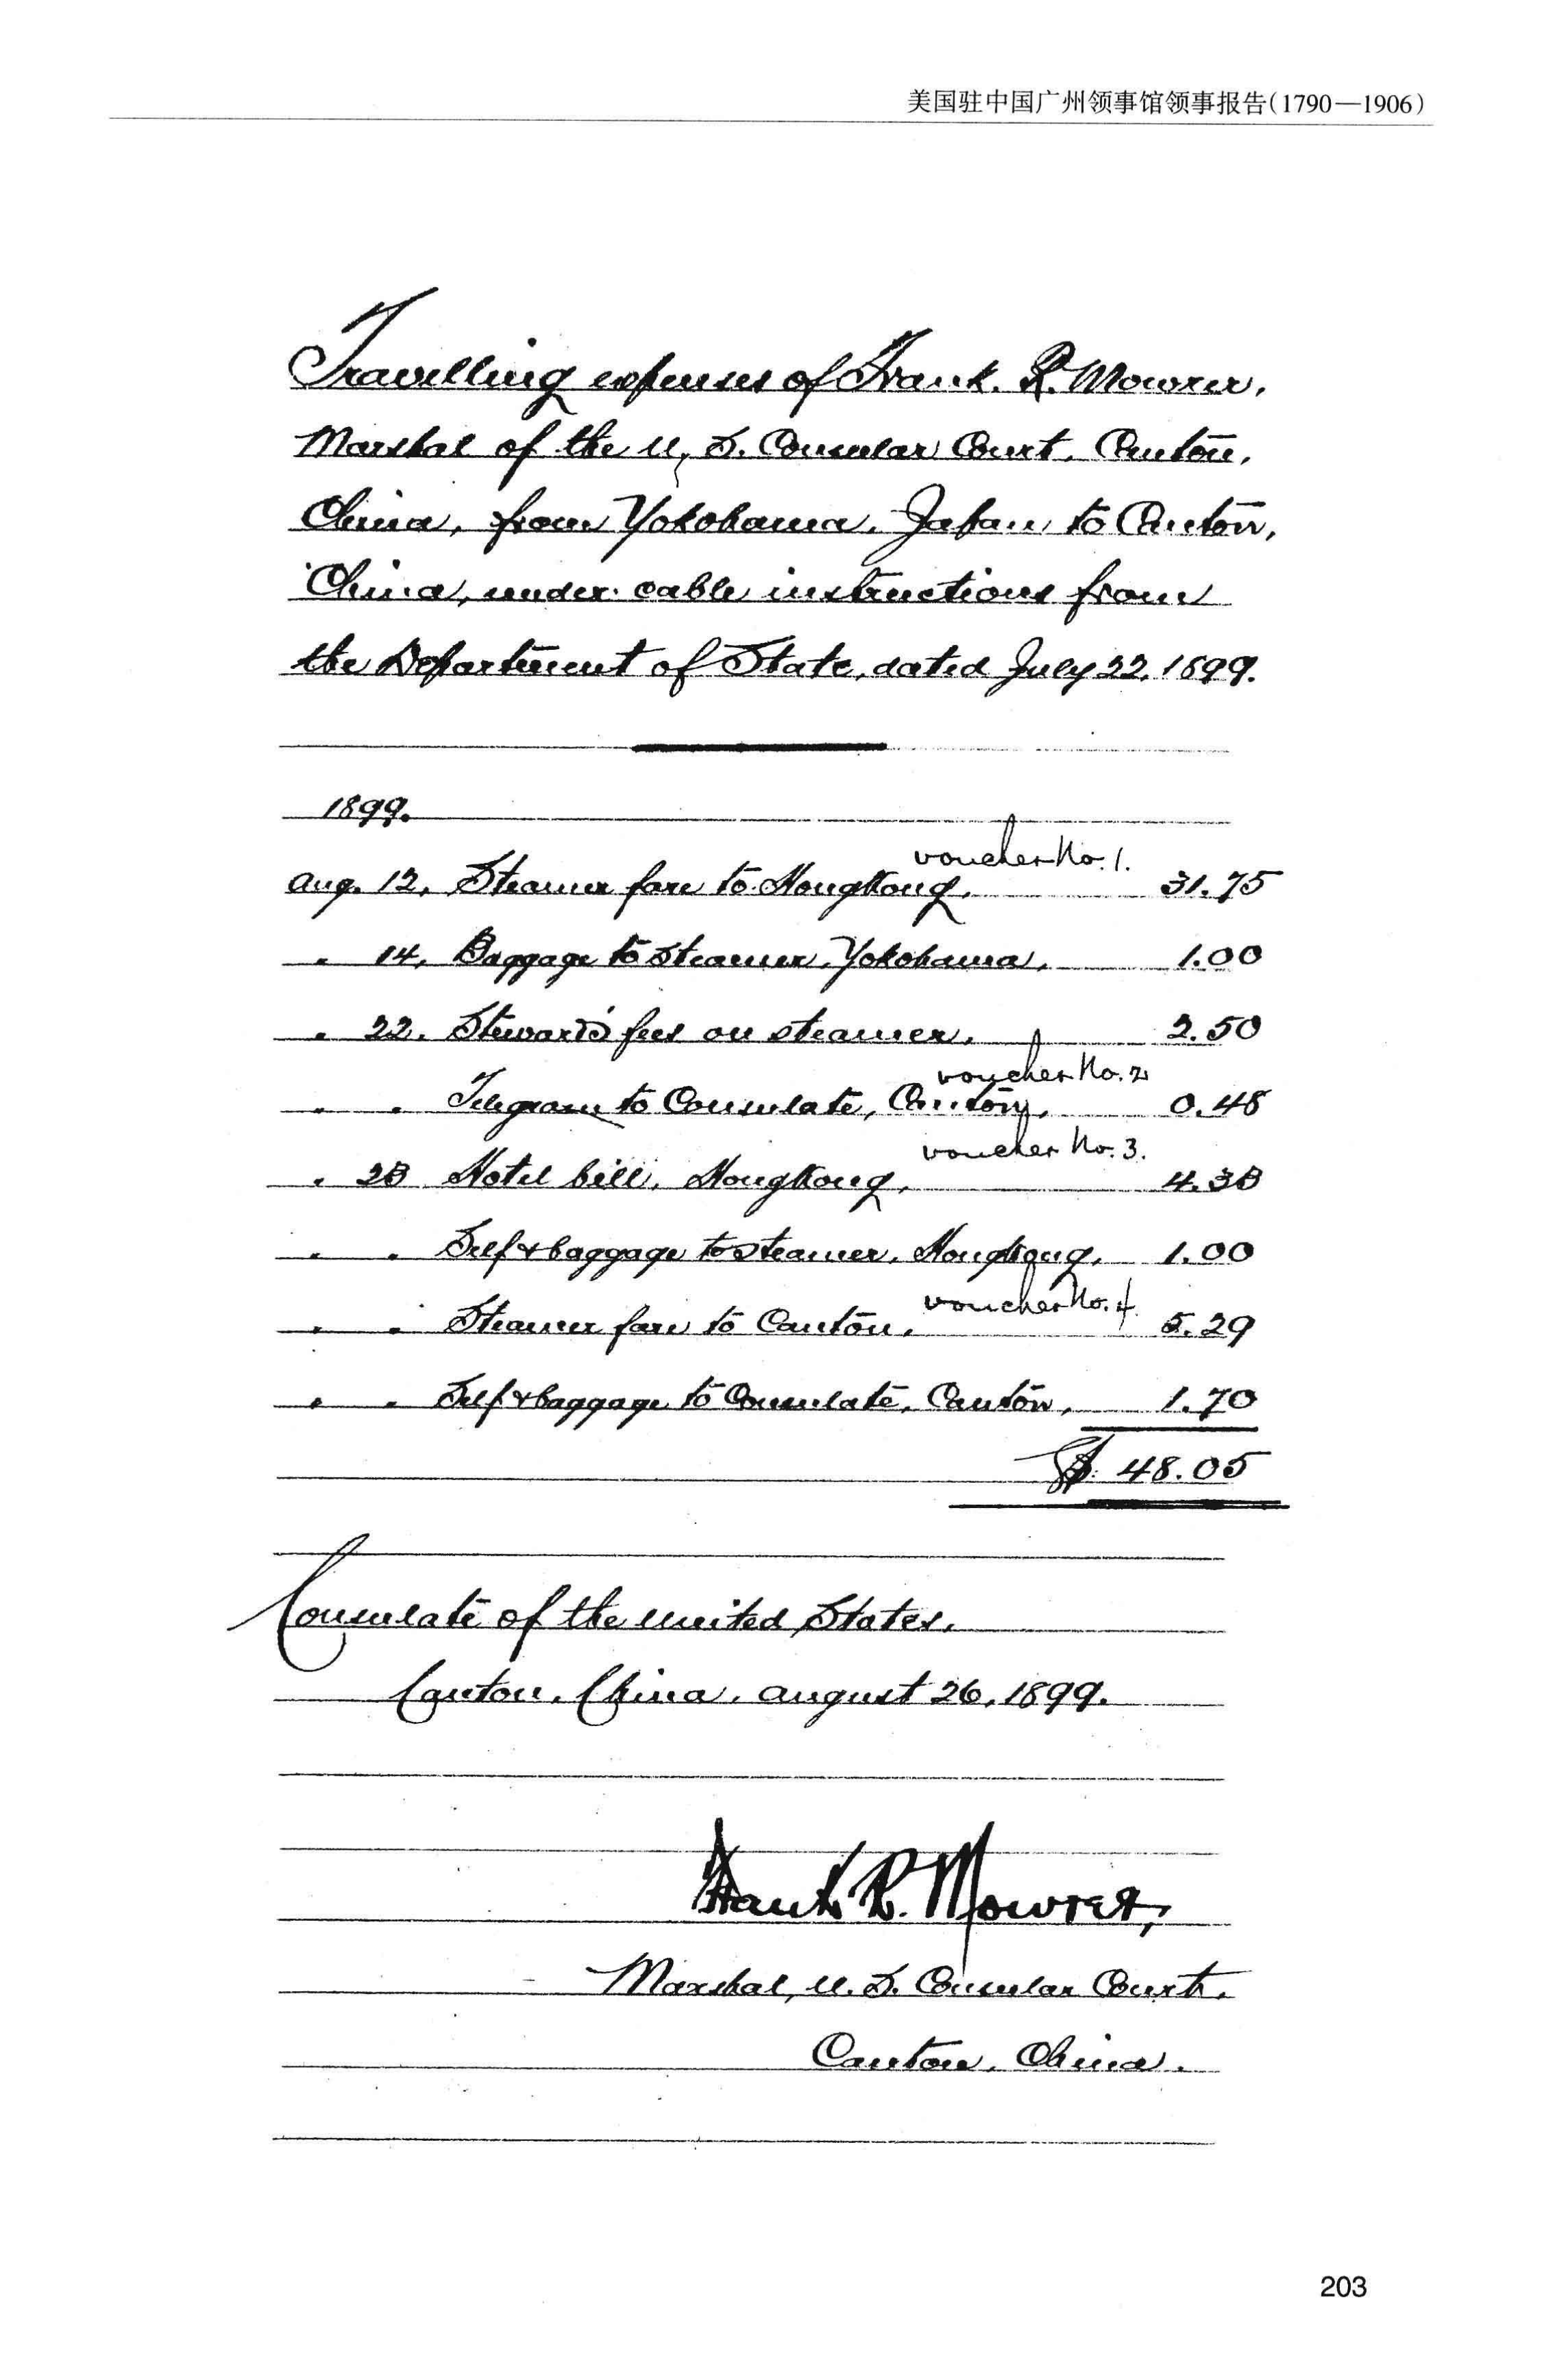 美国驻中国广州领事馆领事报告(1790—1906)
Travelling expenses of Frank. R. Mowrer,
Marshal of the U, S. Consular Court, Canton,
China, from Yokohama, Japan to Canton,
China, under cable instructions from
the Department of State, dated July 22, 1899.
1899.
voucher No. 1.
Aug. 12, Steamer fare to Hongkong, 31.75
" 14, Baggage to steamer, Yokohama, 1.00
" 22. Steward's fees on steamer, 2.50
voucher No. 2
" " Telegram to Consulate, Canton, 0.48
voucher No. 3.
" 23 Hotel bill, Hongkong, 4.33
" " Self & baggage to steamer, Hongkong, 1.00
voucher No. 4
" " Steamer fare to Canton, 5.29
" " Self & baggage to Consulate, Canton, 1.70
$ 48.05
Consulate of the United States,
Canton, China, August 26, 1899.
Frank R. Mowrer,
Marshal, U. S. Consular Court,
Canton, China.
203